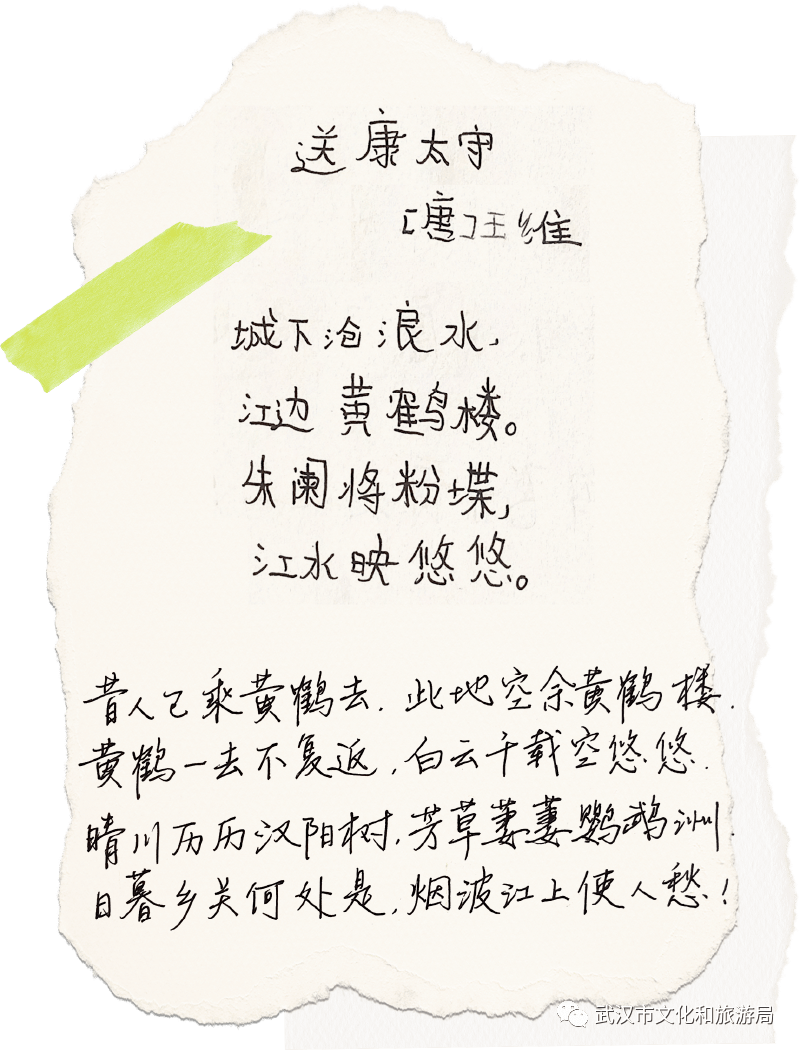 送康太守
[唐]王维
城下沧浪水,
江边黄鹤楼。
朱阑将粉堞,
江水映悠悠。
昔人已乘黄鹤去.此地空余黄鹤楼.
黄鹤一去不复返,白云千载空悠悠.
晴川历历汉阳树,芳草萋萋鹦鹉洲.
日暮乡关何处是,烟波江上使人愁!
武汉市文化和旅游局